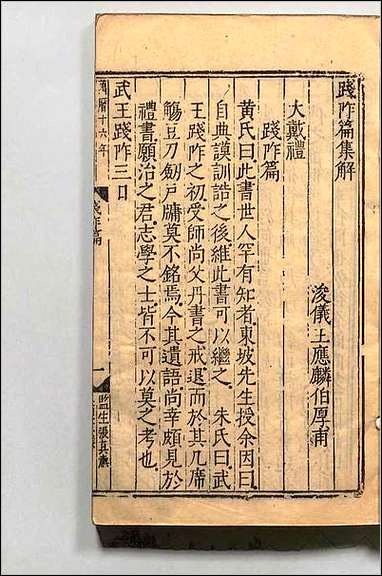 踐阼篇集解
浚儀王應麟伯厚甫
大戴禮
踐阼篇
黃氏曰此書世人罕有知者東坡先生授余因曰
自典謨訓誥之後維此書可以繼之 朱氏曰武
王踐阼之初受師尚父丹書之戒退而於其几席
觴豆刀劒戶牖莫不銘焉今其遺語尚幸頗見於
禮書願治之君志學之士皆不可以莫之考也
武王踐阼三日
萬曆十六年
踐阼篇
一
監生張真